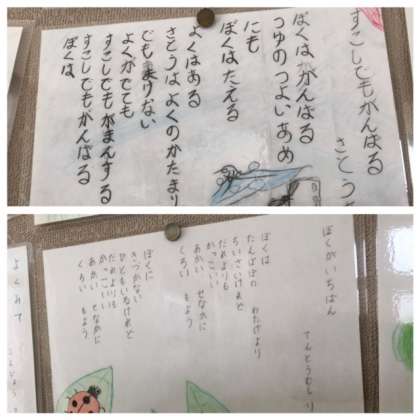 すこしでもがんばる
さとう
ぼくはがんばる
つゆのつよいあめ
にも
ぼくはたえる
よくはある
さとうはよくのかたまり
でもまけない
よくがでても
すこしでもがまんする
すこしでもがんばる
ぼくは
ぼくがいちばん
てんとうむし
ぼくは
たんぽぽの わたげより
ちいさいけれど
だれよりも
かっこいい
あかい せなかに
くろい もよう
ぼくに
きづかない
ひともいるけれど
だれよりも
かっこいい
あかい せなかに
くろい もよう
よくみて